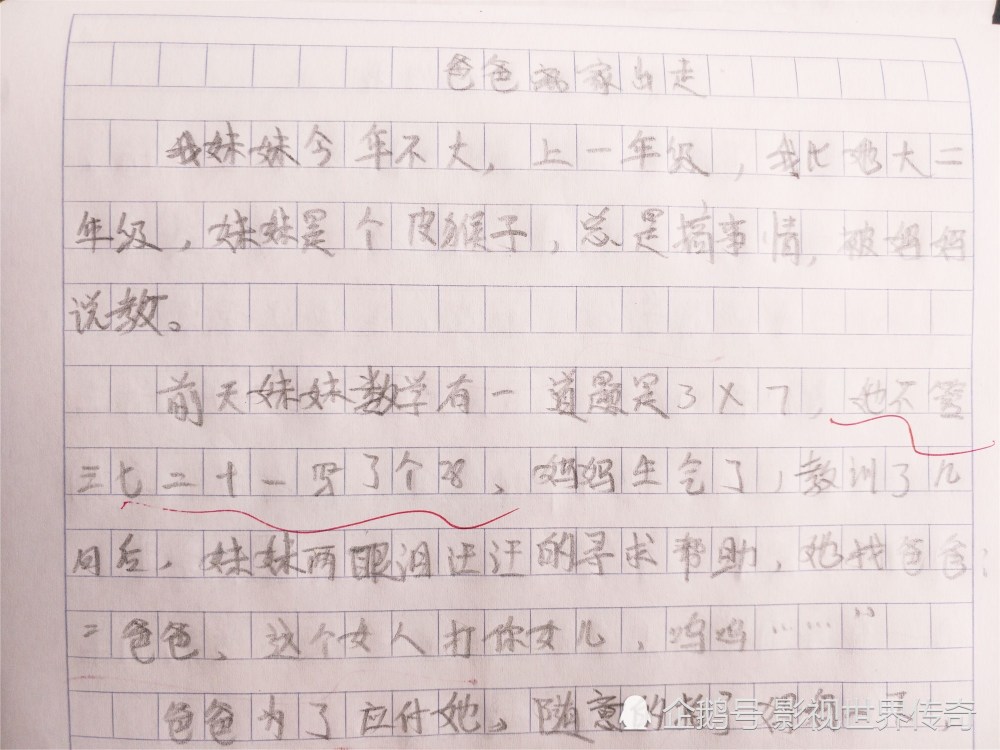 爸爸离家出走
我妹妹今年不大，上一年级，我比她大二
年级，妹妹是个皮猴子，总是搞事情，被妈妈
说教。
前天妹妹数学有一道题是3×7，她不管
三七二十一写了个28、妈妈生气了，教训了几
句后，妹妹两眼泪汪汪的寻求帮助，她找爸爸：
“爸爸、这个女人打你女儿，呜呜……”
爸爸为了应付她，随意
企鹅号 影视世界传奇